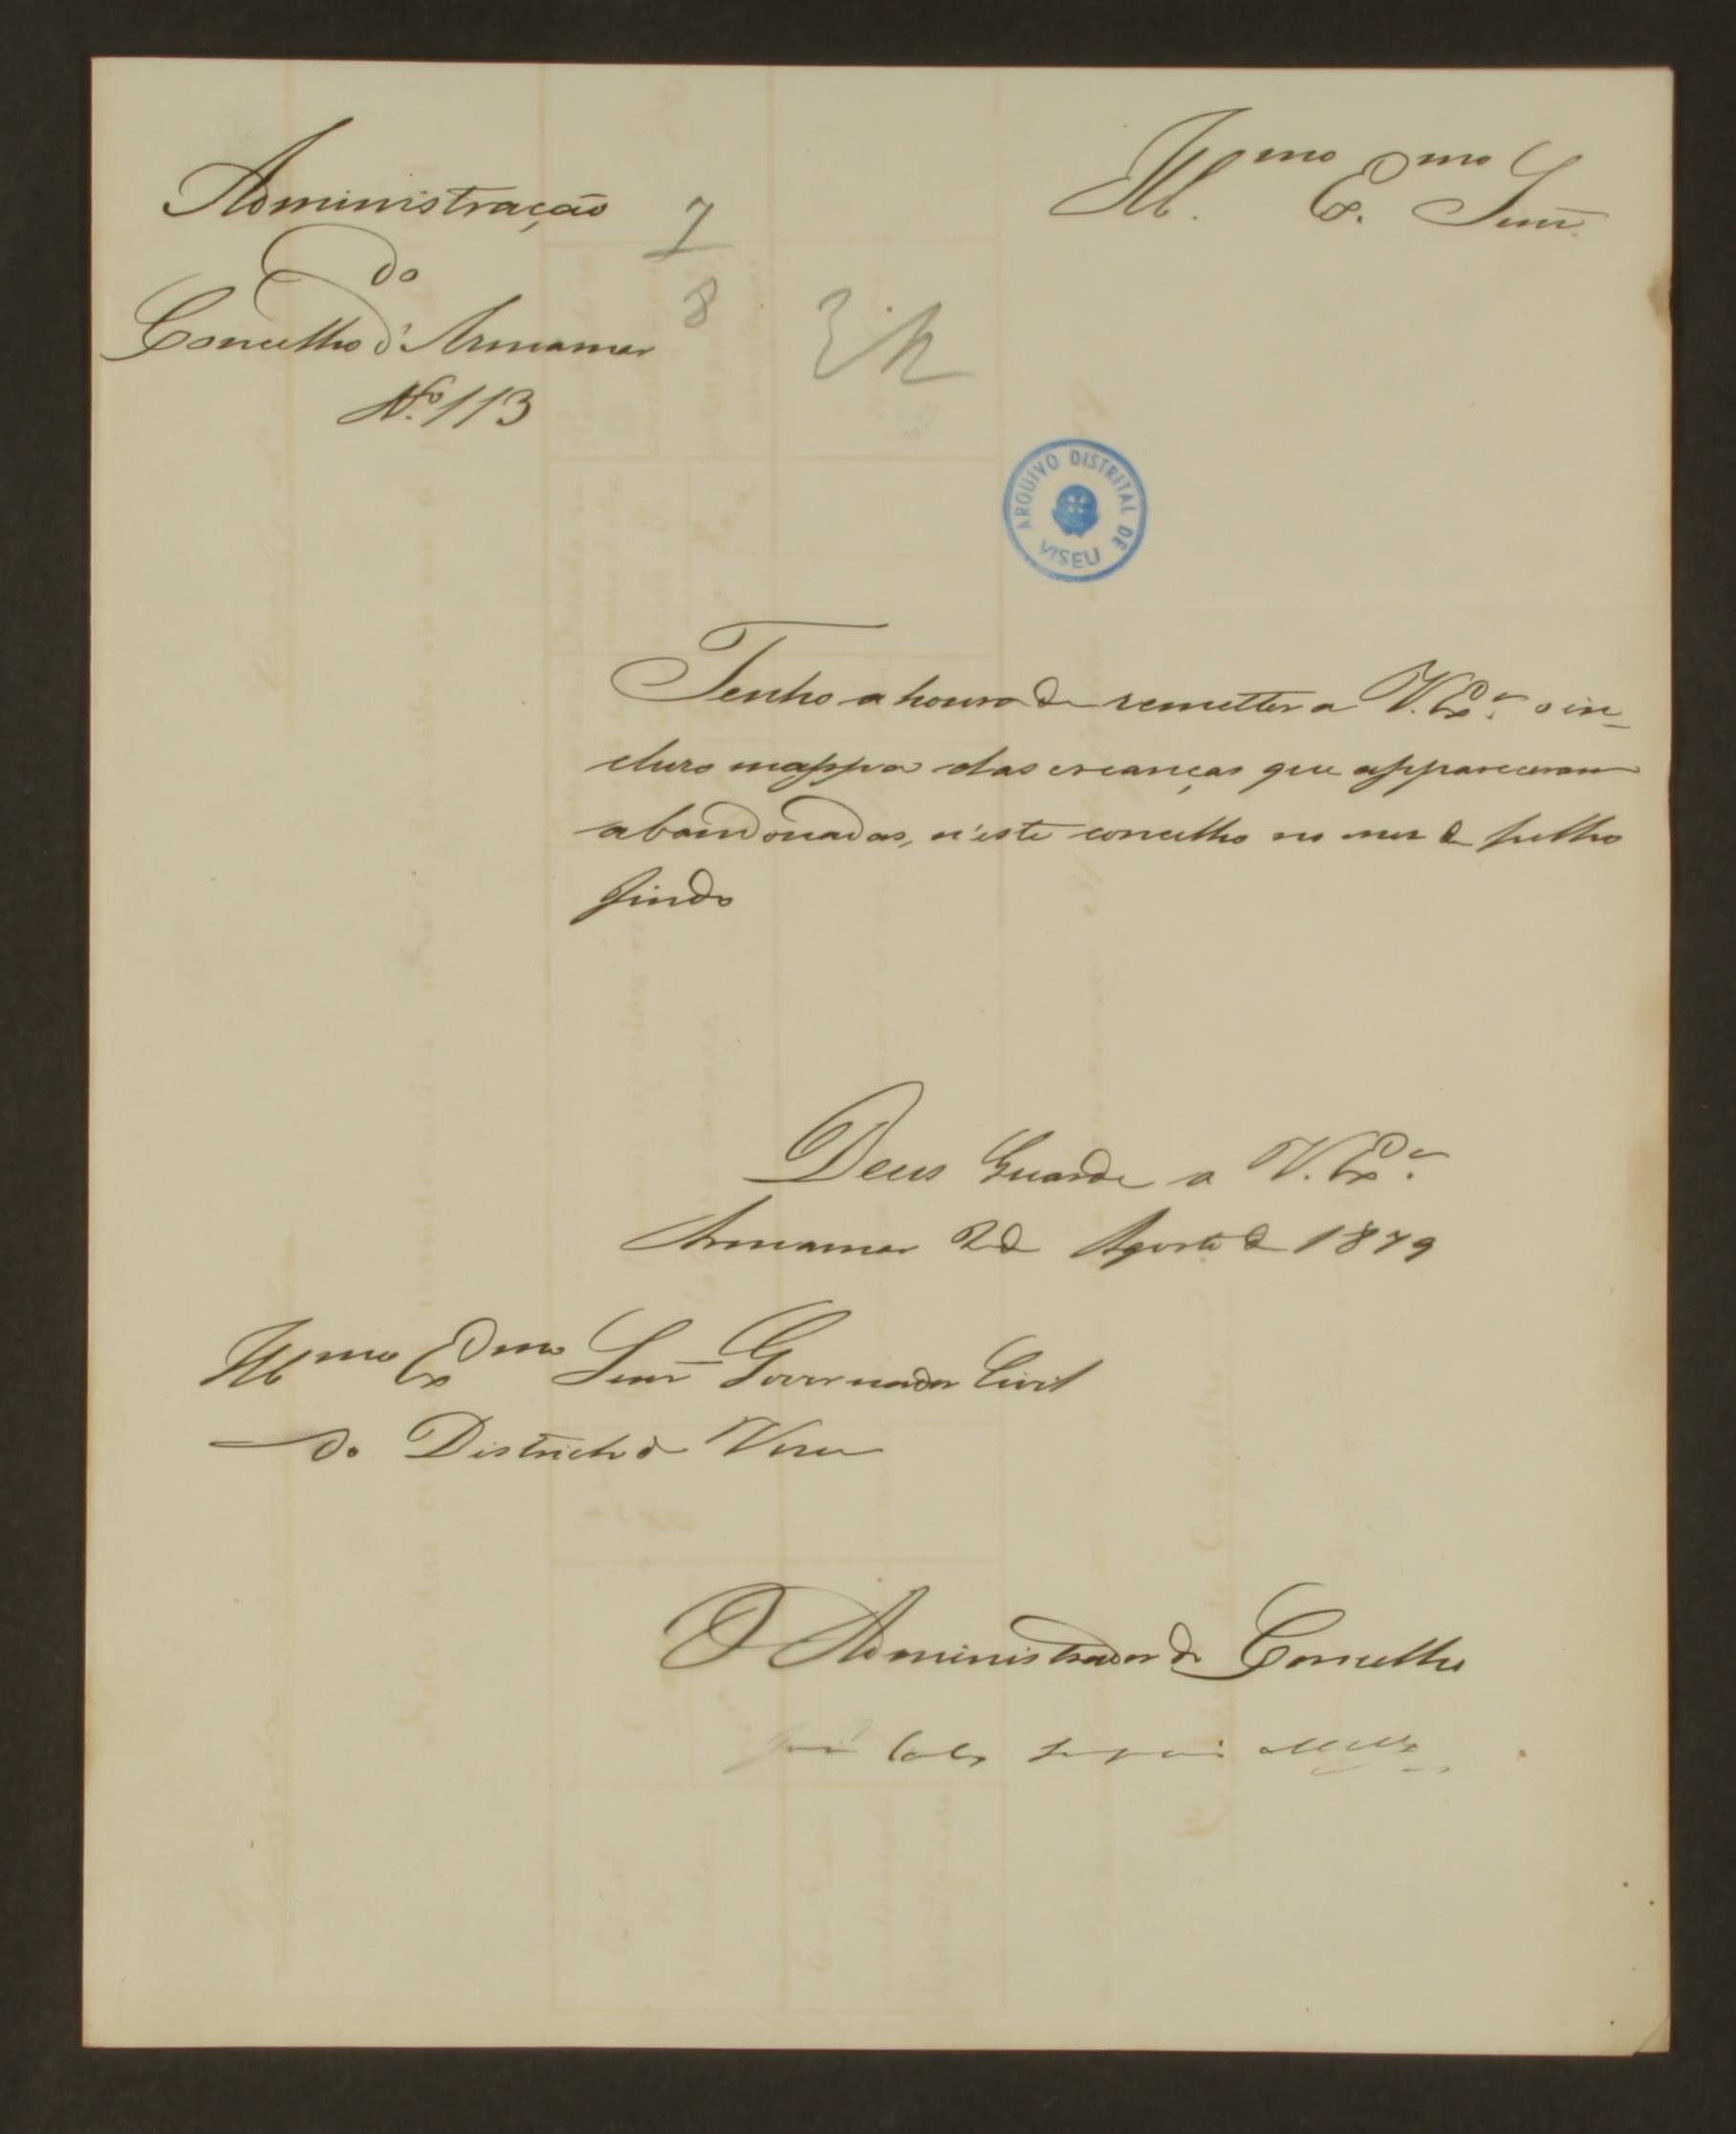 Administração
do
Concelho d'Armamar
Nº 113
7
8
Ill.mo Ex.mo Senr.
ARQUIVO DISTRITAL DE
VISEU
Tenho a honra de remetter a V. Ex.ª o in-
cluso mappa das creanças que appareceram
abandonadas, n'este concelho no mez de julho
findo
Deus Guarde a V. Ex.ª
Armamar 2 de Agosto de 1879
Ill.mo Ex.mo Senr Governador Civil
do Districto de Viseu
O Administrador do Concelho